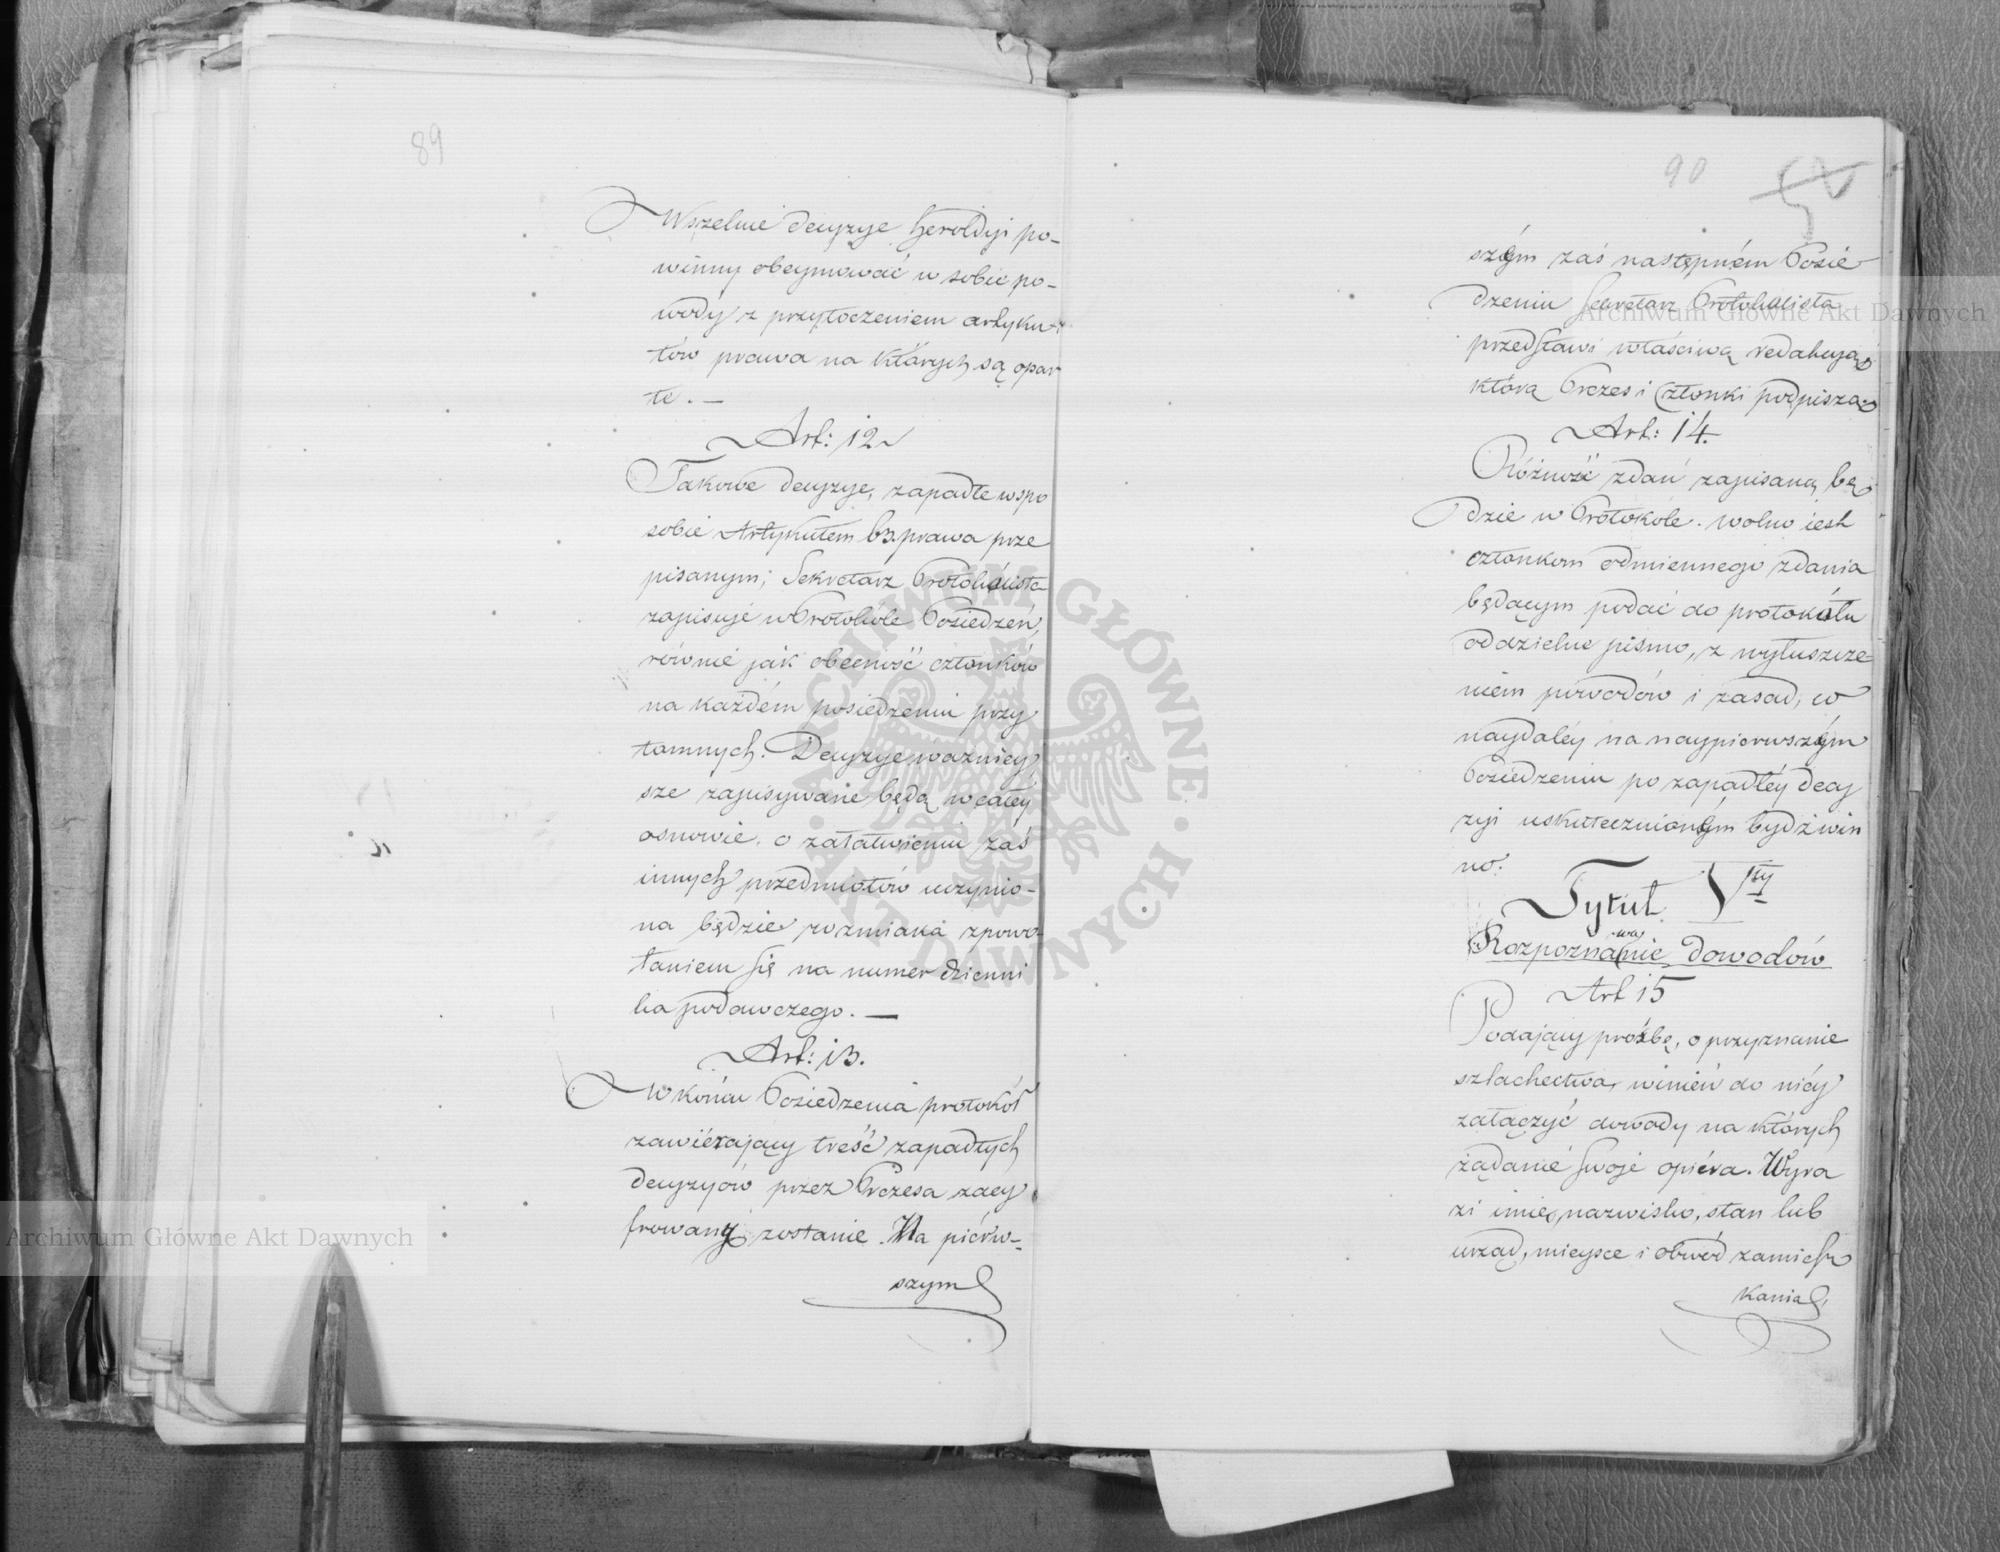 89
Wszelkie decyzye Heroldyi po-
winny obeymować w sobie po-
wody z przytoczeniem artyku-
łów prawa na których są opar
te. —
Art: 12
Takowe decyzye, zapadłe w spo
sobie Artykułem 63. prawa prze
pisanym; Sekretarz Protokólista
zapisuje w Protokóle Posiedzeń,
równie jak obecność członków
na każdém posiedzeniu przy
tomnych. Decyzye ważniey
sze zapisywane będą w całéy
osnowie, o załatwieniu zaś
innych przedmiotów uczynio-
na będzie wzmianka z powo-
łaniem się na numer dzienni
ka podawczego. —
Art: 13.
W końcu Posiedzenia protokół
zawiérający treść zapadłych
decyzyów przez Prezesa zacy
frowany zostanie. Na piérw-
szym
90
szém zaś następném Posie-
dzeniu Sekretarz Protokulista
przedstawi właściwą redakcyą
którą Prezes i Członki podpiszą.
Art: 14.
Różność zdań zapisaną bę
dzie w Protokóle. wolno iest
członkom odmiennego zdania
będącym podać do protokółu
oddzielne pismo, z wyłuszcze-
niem powodów i zasad, co
naydaléy na naypierwszém
Posiedzeniu po zapadłéy decy
zyi uskutecznioném bydź win
no.
Tytuł Vty
Rozpoznawanie dowodów
Art 15
Podający prożbę, o przyznanie
szlachectwa, winień do niéy
załączyć dowody na których
żądanie swoje opiéra. Wyra
zi imie, nazwisko, stan lub
urząd, mieysce i obwód zamiesz
kania,
Archiwum Główne Akt Dawnych
Archiwum Główne Akt Dawnych
ARCHIWUM GŁÓWNE · AKT DAWNYCH ·